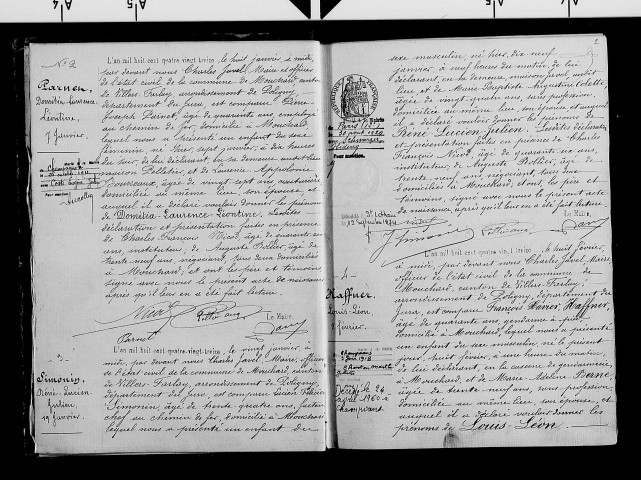 No 2
Parnet
Domitia-Laurence-
Léontine,
7 Janvier.
L'an mil huit cent quatre vingt treize, le huit janvier à midi,
par devant nous Charles Javel, Maire et officier
de l'état civil de la commune de Mouchard, canton
de Villers-Farlay, arrondissement de Poligny,
département du Jura, est comparu Pierre
Joseph Parnet, âgé de quarante ans, employé
au chemin de fer, domicilié à Mouchard
lequel nous a présenté un enfant du sexe
féminin, né hier, sept janvier, à dix heures
du soir, de lui déclarant, en sa demeure
maison Pelletier, et de Laurence Appolonie
âgée de vingt sept ans, couturière
domiciliée au même lieu, son épouse, et
auquel il a déclaré vouloir donner les prénoms
de Domitia-Laurence-Léontine. Lesdites
déclaration et présentation faites en présence
de Charles François Nicot, âgé de quarante six
ans, instituteur, de Auguste Pellier, âgé de
trente neuf ans, négociant, tous deux domiciliés
à Mouchard, et ont les père et témoins
signé avec nous le présent acte de naissance
après qu'il leur en a été fait lecture.
Le Maire,
Parnet
3
Simonin,
René-Lucien
Julien
19 Janvier.
L'an mil huit cent quatre-vingt-treize, le vingt janvier à
midi, par devant nous Charles Javel, Maire, officier
de l'état civil de la commune de Mouchard, canton
de Villers-Farlay, arrondissement de Poligny,
département du Jura, est comparu Lucien
Simonin, âgé de trente quatre ans, facteur
chef au chemin de fer, domicilié à Mouchard
lequel nous a présenté un enfant du
2
sexe masculin, né hier, dix neuf
janvier, à neuf heures du matin, de lui
déclarant, en sa demeure, maison Javel, audit
lieu, et de Marie Baptiste Augustine Coletti,
âgée de vingt quatre ans, sans profession,
domiciliée au même lieu, son épouse, et auquel
il a déclaré vouloir donner les prénoms de
René Lucien Julien. Lesdites déclaration
et présentation faites en présence de Charles
François Nicot, âgé de quarante six ans,
instituteur, de Auguste Pellier, âgé de
trente neuf ans, négociant, tous deux
domiciliés à Mouchard, et ont, les père et
témoins, signé avec nous le présent acte
de naissance, après qu'il leur en a été fait lecture.
Le Maire,
4
Haffner,
Louis-Léon
8 février.
L'an mil huit cent quatre vingt treize, le huit février,
à midi, par devant nous Charles Javel, Maire
et officier de l'état civil de la commune de
Mouchard, canton de Villers-Farlay,
arrondissement de Poligny, département du
Jura, est comparu François Xavier Haffner,
âgé de quarante ans, gendarme à pied
domicilié à Mouchard, lequel nous a présenté
un enfant du sexe masculin, né le présent
jour, huit février, à une heure du matin,
de lui déclarant, en la caserne de gendarmerie,
à Mouchard, et de Marie Adeline
âgée de trente neuf ans, sans profession,
domiciliée au même lieu, son épouse, et
auquel il a déclaré vouloir donner les
prénoms de Louis Léon.